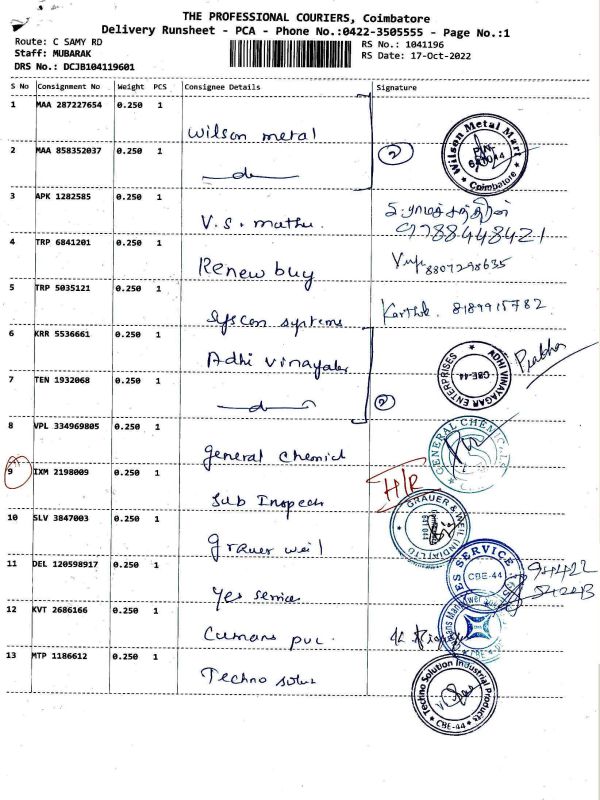 THE PROFESSIONAL COURIERS, Coimbatore
Delivery Runsheet - PCA - Phone No.:0422-3505555 - Page No.:1
Route: C SAMY RD
RS No.: 1041196
Staff: MUBARAK
RS Date: 17-Oct-2022
DRS No.: DCJB104119601
S No Consignment No Weight PCS Consignee Details Signature
1 MAA 287227654 0.250 1
Wilson metal
Wilson Metal Mart
Coimbatore
2 MAA 858352037 0.250 1
2
3 APK 1282585 0.250 1
V.S. mathu
9788448421
4 TRP 6841201 0.250 1
Renew buy
8807298635
5 TRP 5035121 0.250 1
syscon systems
Karthik 8189915782
6 KRR 5536661 0.250 1
Adhi Vinayaka
ADHI VINAYAGAR ENTERPRISES
CBE-44
Prabhu
7 TEN 1932068 0.250 1
2
8 VPL 334969805 0.250 1
General Chemicl
GENERAL CHEMICAL
9 IXM 2198009 0.250 1
Sub Inspecr
H/R
10 SLV 3847003 0.250 1
Grauer weil
GRAUER & WEIL (INDIA) LTD
11 DEL 120598917 0.250 1
Yes service
YES SERVICE
CBE-44
94422
12 KVT 2686166 0.250 1
Cumans pvc
13 MTP 1186612 0.250 1
Techno solus
Techno Solution Industrial Products
CBE-44